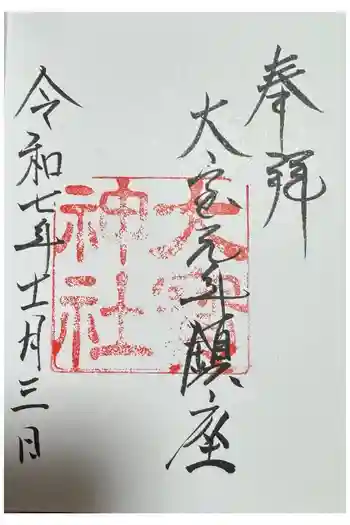 奉拝
大宝元年鎮座
大宝神社
令和七年十一月三日